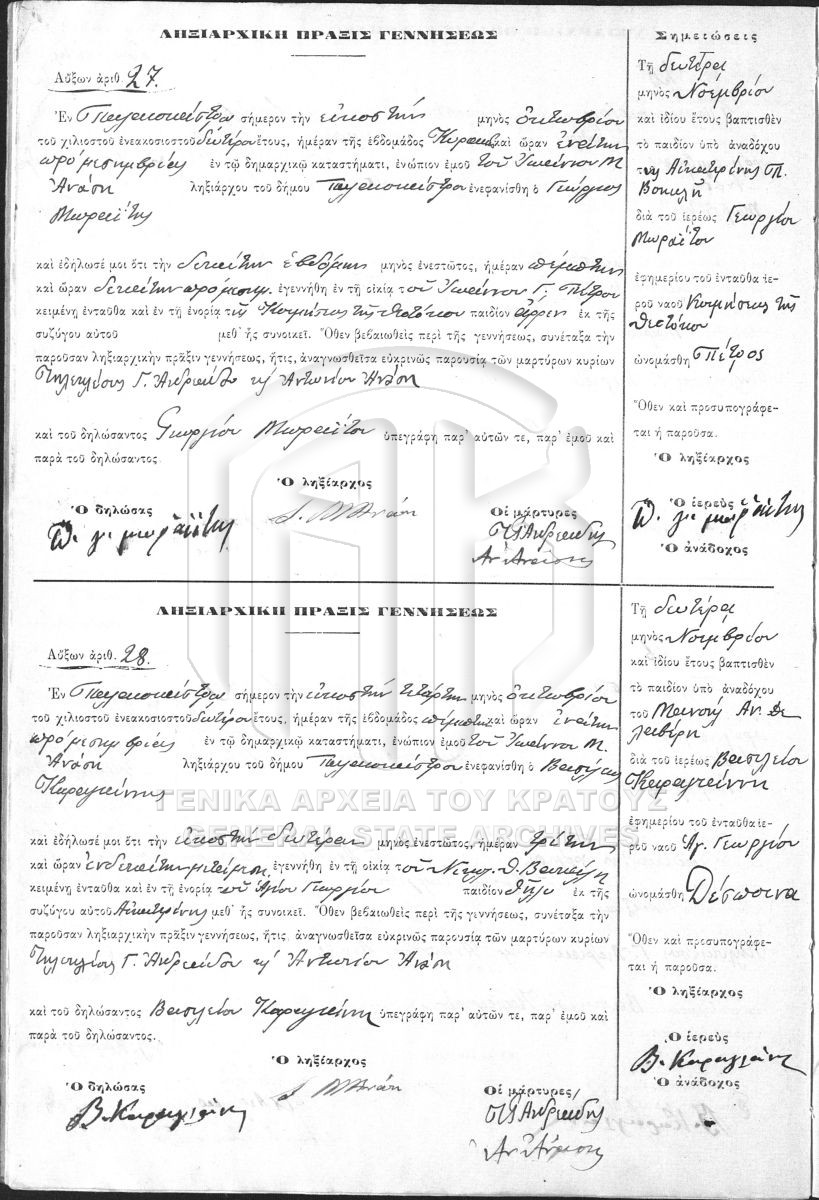 ΛΗΞΙΑΡΧΙΚΗ ΠΡΑΞΙΣ ΓΕΝΝΗΣΕΩΣ
Αὔξων ἀριθ. 27.
Ἐν Παλαιοκάστρῳ σήμερον τὴν εἰκοστὴν μηνὸς ὀκτωβρίου
τοῦ χιλιοστοῦ ἐνεακοσιοστοῦ δευτέρου ἔτους, ἡμέραν τῆς ἑβδομάδος Κυριακὴν καὶ ὥραν ἐνάτην
πρὸ μεσημβρίας ἐν τῷ δημαρχικῷ καταστήματι, ἐνώπιον ἐμοῦ τοῦ Ἰωάννου Μ.
Ἀνάση ληξιάρχου τοῦ δήμου Παλαιοκάστρου ἐνεφανίσθη ὁ Γεώργιος
Μωραΐτης
καὶ ἐδήλωσέ μοι ὅτι τὴν δεκάτην ἑβδόμην μηνὸς ἐνεστῶτος, ἡμέραν πέμπτην
καὶ ὥραν δεκάτην πρὸ μεσημ. ἐγεννήθη ἐν τῇ οἰκίᾳ τοῦ Ἰωάννου Γ. Πέτρου
κειμένῃ ἐνταῦθα καὶ ἐν τῇ ἐνορίᾳ τῆς Κοιμήσεως τῆς Θεοτόκου παιδίον ἄρρεν ἐκ τῆς
συζύγου αὐτοῦ μεθ' ἧς συνοικεῖ. Ὅθεν βεβαιωθεὶς περὶ τῆς γεννήσεως, συνέταξα τὴν
παροῦσαν ληξιαρχικὴν πρᾶξιν γεννήσεως, ἥτις, ἀναγνωσθεῖσα εὐκρινῶς παρουσίᾳ τῶν μαρτύρων κυρίων
Γ. Ἀνδρεάδου κ Ἀντωνίου Ἀνάση
καὶ τοῦ δηλώσαντος Γεωργίου Μωραΐτου ὑπεγράφη παρ' αὐτῶν τε, παρ' ἐμοῦ καὶ
παρὰ τοῦ δηλώσαντος
Ὁ ληξίαρχος
Ὁ δηλώσας
Οἱ μάρτυρες
γ. μωραΐτης
Ἀνδρεάδης
Ἀν. Ἀνάσης
Σημειώσεις
Τῇ δευτέρᾳ
μηνὸς Νοεμβρίου
καὶ ἰδίου ἔτους βαπτισθὲν
τὸ παιδίον ὑπὸ ἀναδόχου
τῆς Αἰκατερίνης Π.
διὰ τοῦ ἱερέως Γεωργίου
Μωραΐτου
ἐφημερίου τοῦ ἐνταῦθα ἱε-
ροῦ ναοῦ Κοιμήσεως τῆς
Θεοτόκου
ὠνομάσθη Πέτρος
Ὅθεν καὶ προσυπογράφε-
ται ἡ παροῦσα.
Ὁ ληξίαρχος
Ὁ ἱερεὺς
γ. μωραΐτης
Ὁ ἀνάδοχος
ΛΗΞΙΑΡΧΙΚΗ ΠΡΑΞΙΣ ΓΕΝΝΗΣΕΩΣ
Αὔξων ἀριθ. 28.
Ἐν Παλαιοκάστρῳ σήμερον τὴν εἰκοστὴν τετάρτην μηνὸς ὀκτωβρίου
τοῦ χιλιοστοῦ ἐνεακοσιοστοῦ δευτέρου ἔτους, ἡμέραν τῆς ἑβδομάδος πέμπτην καὶ ὥραν ἐνάτην
πρὸ μεσημβρίας ἐν τῷ δημαρχικῷ καταστήματι, ἐνώπιον ἐμοῦ τοῦ Ἰωάννου Μ.
Ἀνάση ληξιάρχου τοῦ δήμου Παλαιοκάστρου ἐνεφανίσθη ὁ Βασίλειος
Καραγιάννης
ΓΕΝΙΚΑ ΑΡΧΕΙΑ ΤΟΥ ΚΡΑΤΟΥΣ
GENERAL STATE ARCHIVES
καὶ ἐδήλωσέ μοι ὅτι τὴν εἰκοστὴν δευτέραν μηνὸς ἐνεστῶτος, ἡμέραν τρίτην
καὶ ὥραν ἑνδεκάτην ἐγεννήθη ἐν τῇ οἰκίᾳ τοῦ
κειμένῃ ἐνταῦθα καὶ ἐν τῇ ἐνορίᾳ τοῦ Ἁγίου Γεωργίου παιδίον θῆλυ ἐκ τῆς
συζύγου αὐτοῦ Αἰκατερίνης μεθ' ἧς συνοικεῖ. Ὅθεν βεβαιωθεὶς περὶ τῆς γεννήσεως, συνέταξα τὴν
παροῦσαν ληξιαρχικὴν πρᾶξιν γεννήσεως, ἥτις, ἀναγνωσθεῖσα εὐκρινῶς παρουσίᾳ τῶν μαρτύρων κυρίων
Γ. Ἀνδρεάδου κ Ἀντωνίου Ἀνάση
καὶ τοῦ δηλώσαντος Βασιλείου Καραγιάννη ὑπεγράφη παρ' αὐτῶν τε, παρ' ἐμοῦ καὶ
παρὰ τοῦ δηλώσαντος.
Ὁ ληξίαρχος
Ὁ δηλώσας
Οἱ μάρτυρες
Β. Καραγιάνης
Ἀνδρεάδης
Ἀν. Ἀνάσης
Τῇ δευτέρᾳ
μηνὸς Νοεμβρίου
καὶ ἰδίου ἔτους βαπτισθὲν
τὸ παιδίον ὑπὸ ἀναδόχου
τοῦ
διὰ τοῦ ἱερέως Βασιλείου
Καραγιάννη
ἐφημερίου τοῦ ἐνταῦθα ἱε-
ροῦ ναοῦ Ἁγ. Γεωργίου
ὠνομάσθη Δέσποινα
Ὅθεν καὶ προσυπογράφε-
ται ἡ παροῦσα.
Ὁ ληξίαρχος
Ὁ ἱερεὺς
Β. Καραγιάνης
Ὁ ἀνάδοχος